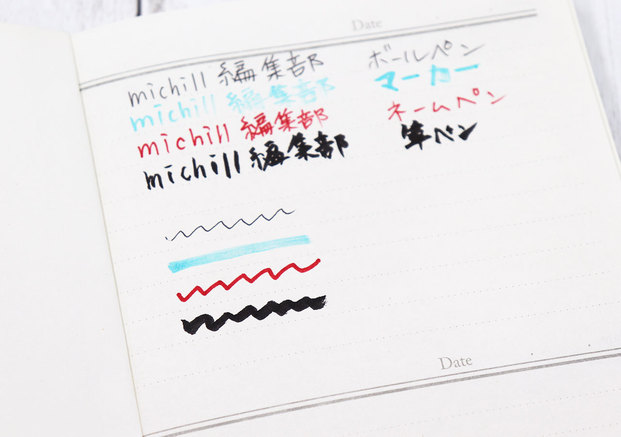 Date
michill 編集部 ボールペン
michill 編集部 マーカー
michill 編集部 ネームペン
michill 編集部 筆ペン
Date